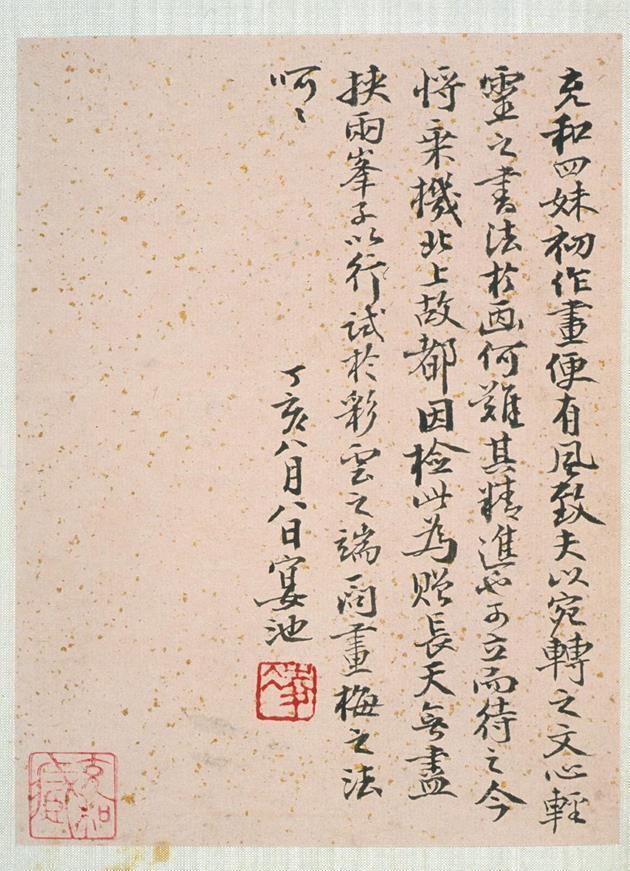 充和四妹初作畫便有風致夫以宛轉之文心輕
靈之書法於畫何難其精進也可立而待之今
將乘機北上故都因檢此為贈長天無盡
挾兩峯子以行試於彩雲之端商畫梅之法
呵〻
丁亥八月八日宴池
充和